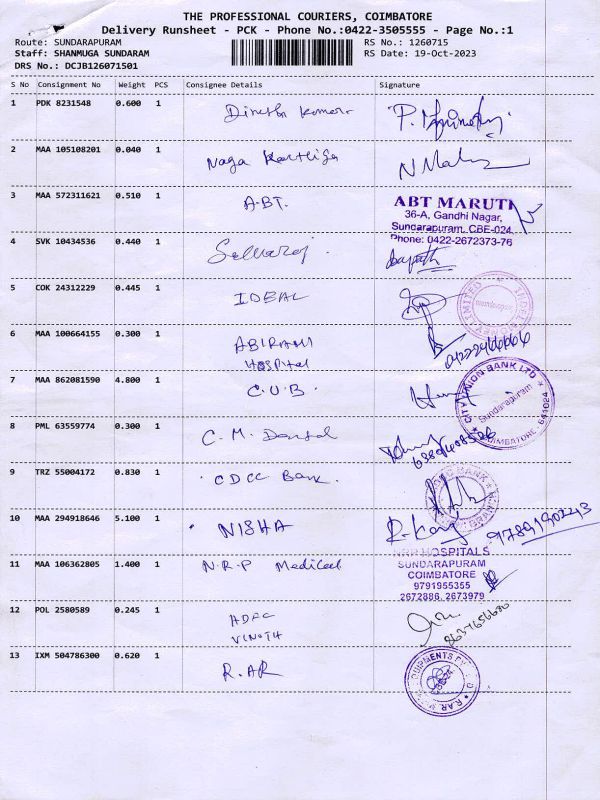 THE PROFESSIONAL COURIERS, COIMBATORE
Delivery Runsheet - PCK - Phone No.:0422-3505555 - Page No.:1
Route: SUNDARAPURAM RS No.: 1260715
Staff: SHANMUGA SUNDARAM RS Date: 19-Oct-2023
DRS No.: DCJB126071501
S No Consignment No Weight PCS Consignee Details Signature
1 PDK 8231548 0.600 1 Dinesh Kumar
2 MAA 105108201 0.040 1 Naga
3 MAA 572311621 0.510 1 A.B.T. ABT MARUTI
36-A, Gandhi Nagar,
Sundarapuram, CBE-024.
Phone: 0422-2672373-76
4 SVK 10434536 0.440 1 Selvaraj
5 COK 24312229 0.445 1 IDEAL
6 MAA 100664155 0.300 1 ABIRAMI
Hospital
7 MAA 862081590 4.800 1 C.U.B. CITY UNION BANK LTD
Sundarapuram
COIMBATORE 641024
8 PML 63559774 0.300 1 C.M. Dental
9 TRZ 55004172 0.830 1 CDCC Bank.
10 MAA 294918646 5.100 1 NISHA 9789190243
11 MAA 106362805 1.400 1 N.R.P Medical NRP HOSPITALS
SUNDARAPURAM
COIMBATORE
9791955355
2672886, 2673979
12 POL 2580589 0.245 1 HDFC
VINOTH
13 IXM 504786300 0.620 1 R.AR